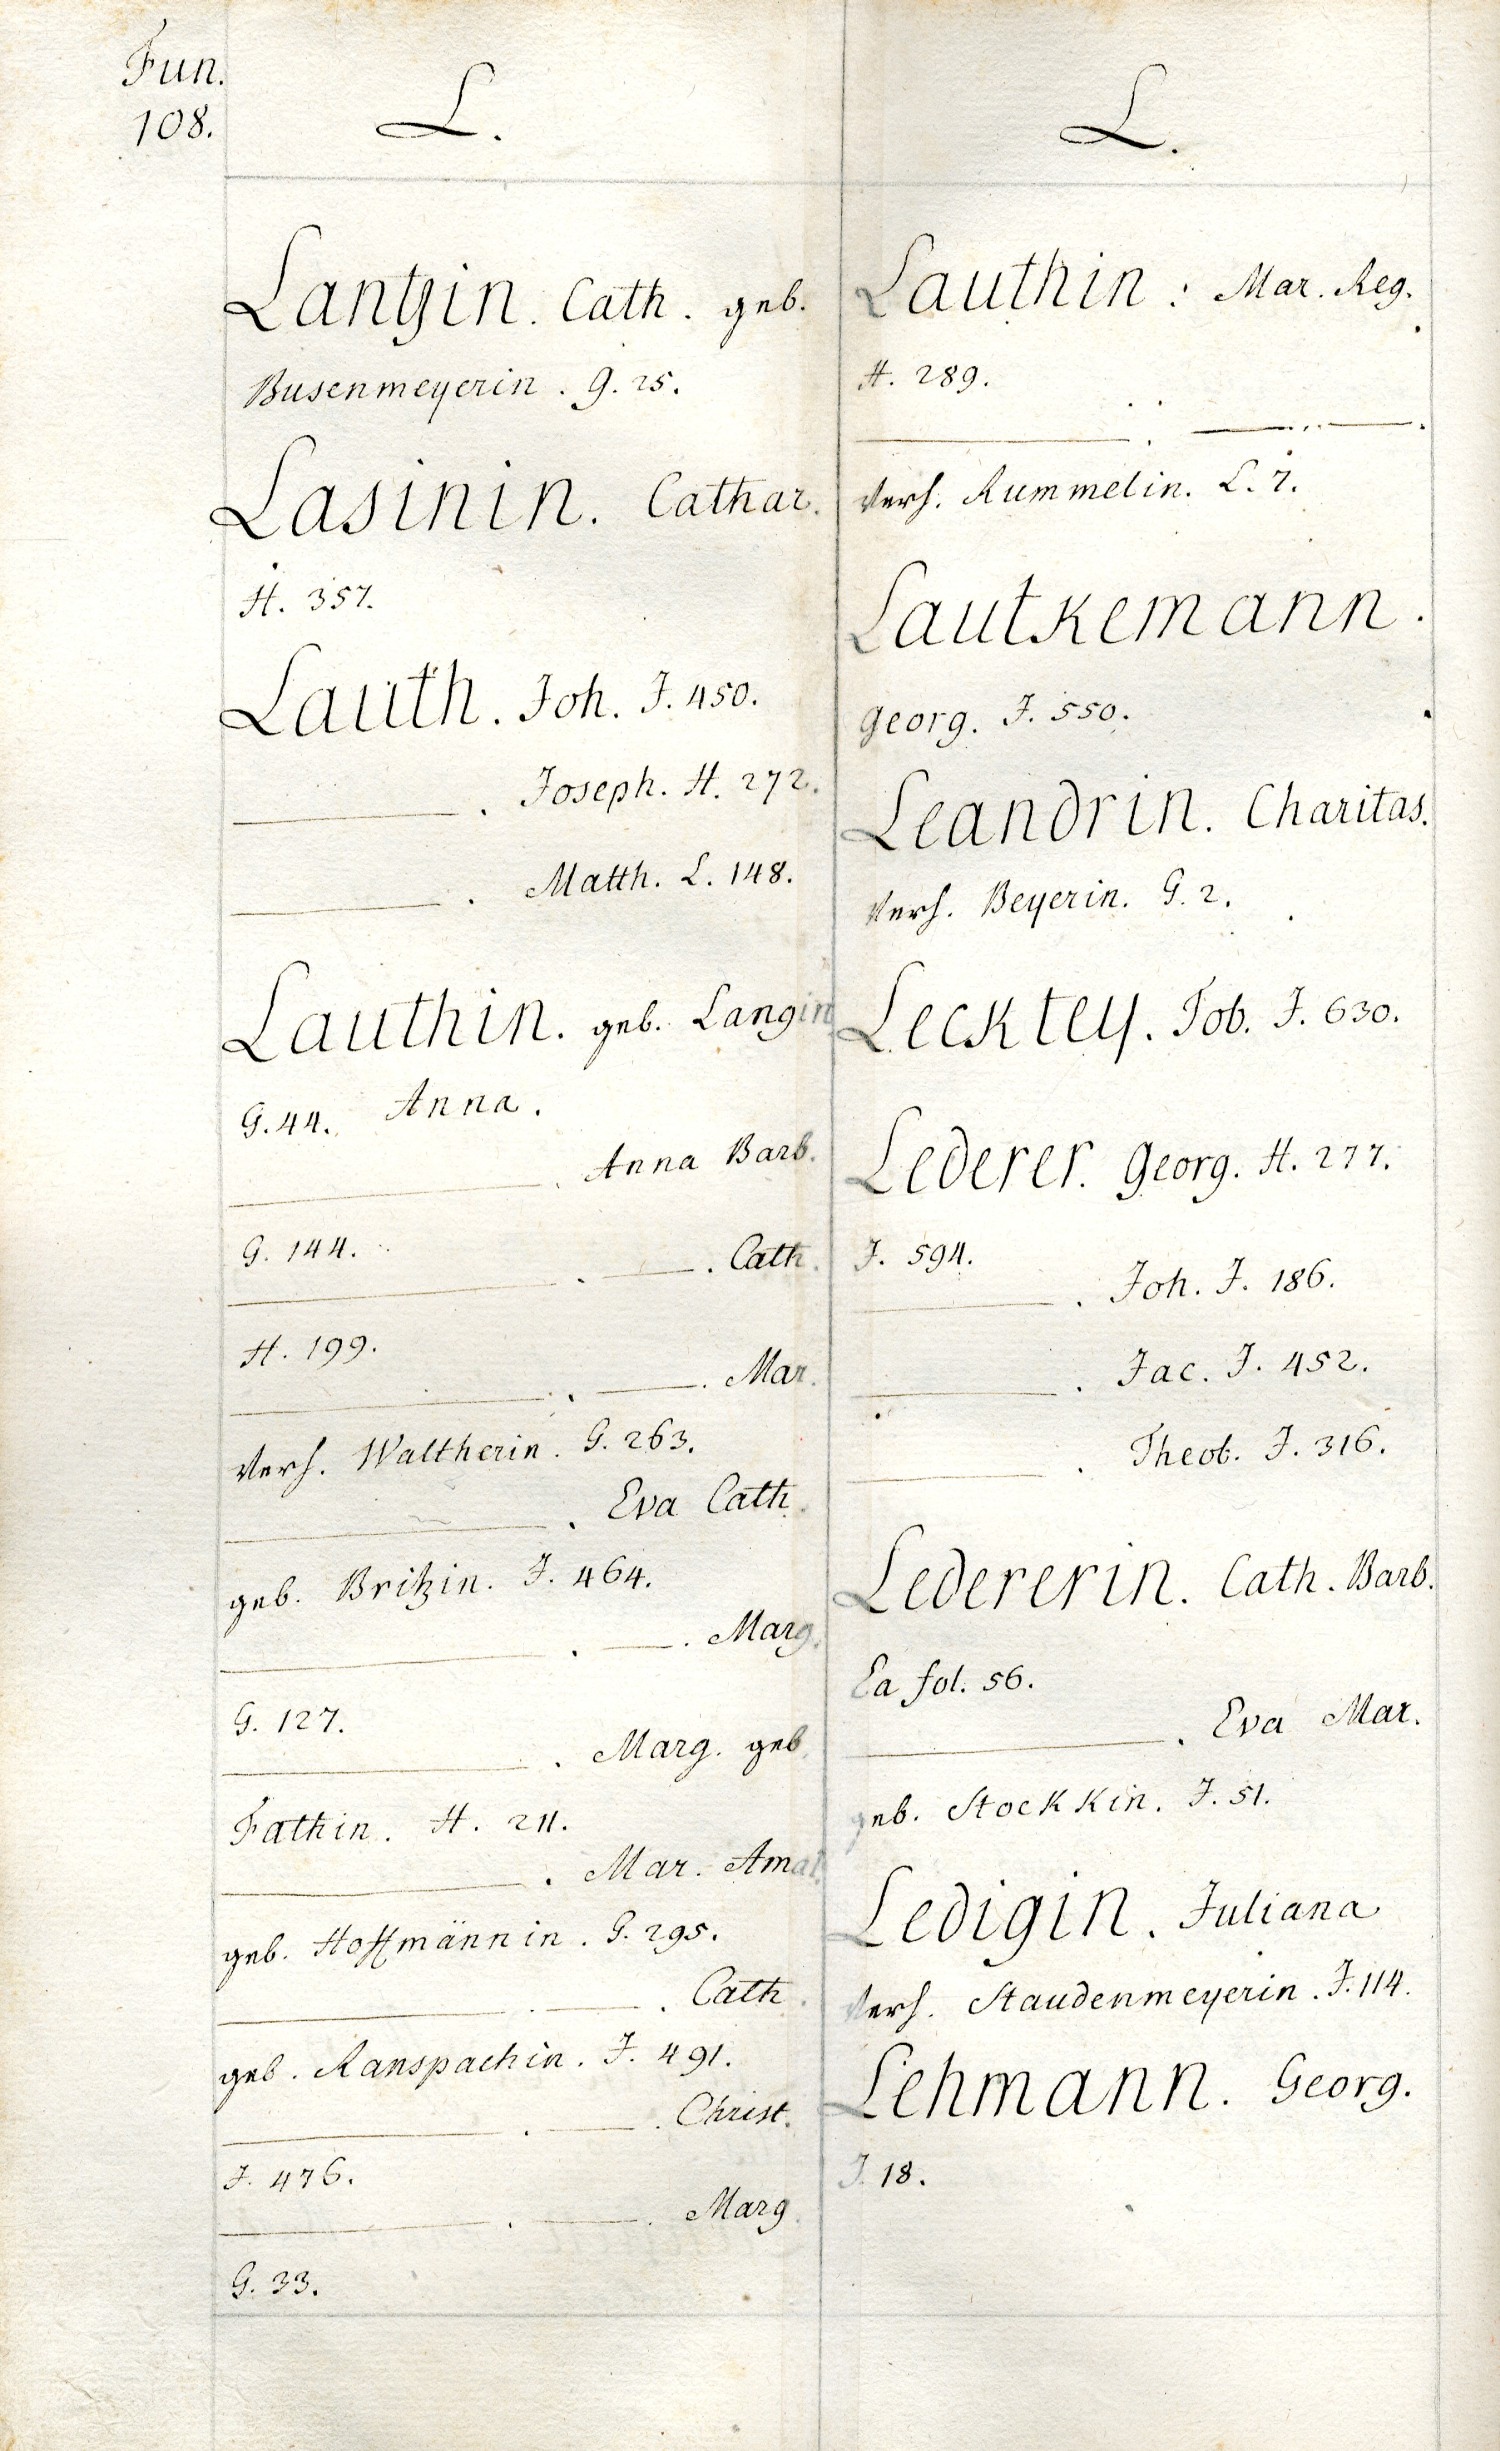 Fun.
108.
L.
Langin. Cath. geb.
Busenmeyerin. G. 25.
Lasinin. Cathar.
H. 357.
Lauth. Joh. J. 450.
———. Joseph. H. 272.
———. Matth. L. 148.
Lauthin. geb. Langin
G. 44. Anna.
———. Anna Barb.
G. 144.
———. ———. Cath.
H. 199.
———. ———. Mar.
verh. Waltherin. G. 263.
———. Eva Cath.
geb. Britzin. J. 464.
———. ———. Marg.
G. 127.
———. Marg. geb.
Fathin. H. 211.
———. Mar. Amal.
geb. Hoffmännin. G. 295.
———. ———. Cath.
geb. Ranspachin. J. 491.
———. ———. Christ.
J. 476.
———. ———. Marg.
G. 33.
L.
Lauthin: Mar. Reg.
H. 289.
———. ——— ———.
verh. Rummelin. L. 7.
Lautkemann.
Georg. J. 550.
Leandrin. Charitas.
verh. Beyerin. G. 2.
Lecktey. Tob. J. 630.
Lederer. Georg. H. 277.
J. 594.
———. Joh. J. 186.
———. Jac. J. 452.
———. Theob. J. 316.
Ledererin. Cath. Barb.
Ea fol. 56.
———. Eva Mar.
geb. Stockkin. J. 51.
Ledigin. Juliana
verh. Staudenmeyerin. J. 114.
Lehmann. Georg.
J. 18.